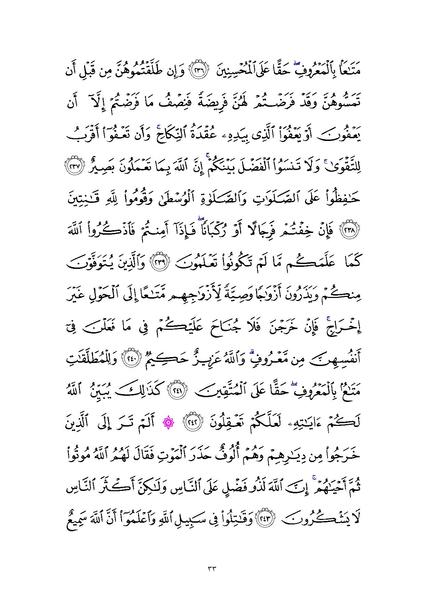 مَتَٰعَۢا بِٱلۡمَعۡرُوفِۖ حَقًّا عَلَى ٱلۡمُحۡسِنِينَ ٢٣٦ وَإِن طَلَّقۡتُمُوهُنَّ مِن قَبۡلِ أَن
تَمَسُّوهُنَّ وَقَدۡ فَرَضۡتُمۡ لَهُنَّ فَرِيضَةٗ فَنِصۡفُ مَا فَرَضۡتُمۡ إِلَّآ أَن
يَعۡفُونَ أَوۡ يَعۡفُوَاْ ٱلَّذِي بِيَدِهِۦ عُقۡدَةُ ٱلنِّكَاحِۚ وَأَن تَعۡفُوٓاْ أَقۡرَبُ
لِلتَّقۡوَىٰۚ وَلَا تَنسَوُاْ ٱلۡفَضۡلَ بَيۡنَكُمۡۚ إِنَّ ٱللَّهَ بِمَا تَعۡمَلُونَ بَصِيرٌ ٢٣٧
حَٰفِظُواْ عَلَى ٱلصَّلَوَٰتِ وَٱلصَّلَوٰةِ ٱلۡوُسۡطَىٰ وَقُومُواْ لِلَّهِ قَٰنِتِينَ
٢٣٨ فَإِنۡ خِفۡتُمۡ فَرِجَالًا أَوۡ رُكۡبَانٗاۖ فَإِذَآ أَمِنتُمۡ فَٱذۡكُرُواْ ٱللَّهَ
كَمَا عَلَّمَكُم مَّا لَمۡ تَكُونُواْ تَعۡلَمُونَ ٢٣٩ وَٱلَّذِينَ يُتَوَفَّوۡنَ
مِنكُمۡ وَيَذَرُونَ أَزۡوَٰجٗا وَصِيَّةٗ لِّأَزۡوَٰجِهِم مَّتَٰعًا إِلَى ٱلۡحَوۡلِ غَيۡرَ
إِخۡرَاجٖۚ فَإِنۡ خَرَجۡنَ فَلَا جُنَاحَ عَلَيۡكُمۡ فِي مَا فَعَلۡنَ فِيٓ
أَنفُسِهِنَّ مِن مَّعۡرُوفٖۗ وَٱللَّهُ عَزِيزٌ حَكِيمٞ ٢٤٠ وَلِلۡمُطَلَّقَٰتِ
مَتَٰعُۢ بِٱلۡمَعۡرُوفِۖ حَقًّا عَلَى ٱلۡمُتَّقِينَ ٢٤١ كَذَٰلِكَ يُبَيِّنُ ٱللَّهُ
لَكُمۡ ءَايَٰتِهِۦ لَعَلَّكُمۡ تَعۡقِلُونَ ٢٤٢ ۞ أَلَمۡ تَرَ إِلَى ٱلَّذِينَ
خَرَجُواْ مِن دِيَٰرِهِمۡ وَهُمۡ أُلُوفٌ حَذَرَ ٱلۡمَوۡتِ فَقَالَ لَهُمُ ٱللَّهُ مُوتُواْ
ثُمَّ أَحۡيَٰهُمۡۚ إِنَّ ٱللَّهَ لَذُو فَضۡلٍ عَلَى ٱلنَّاسِ وَلَٰكِنَّ أَكۡثَرَ ٱلنَّاسِ
لَا يَشۡكُرُونَ ٢٤٣ وَقَٰتِلُواْ فِي سَبِيلِ ٱللَّهِ وَٱعۡلَمُوٓاْ أَنَّ ٱللَّهَ سَمِيعٌ
٣٣